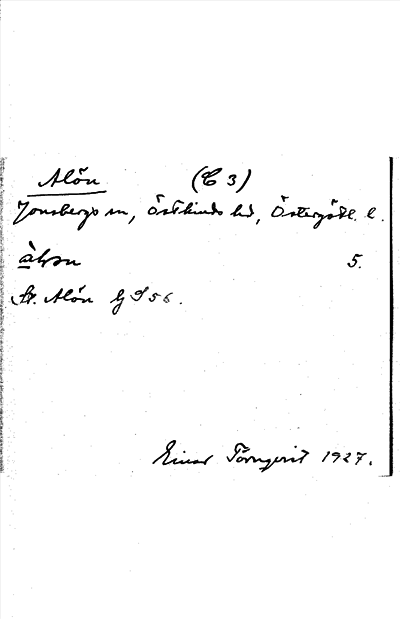 Alön (C 3)
Jonsbergs sn, Östkinds hd, Östergötl. l.
5.
St. Alön G S 56.
Einar Törnqvist 1927.